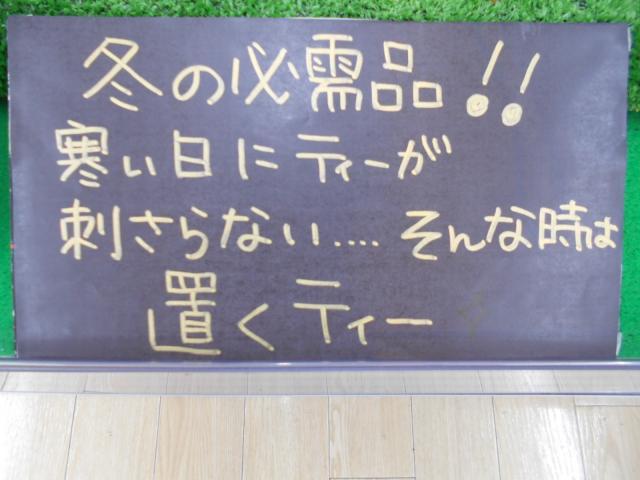 冬の必需品!!
寒い日にティーが
刺さらない....そんな時は
置くティー